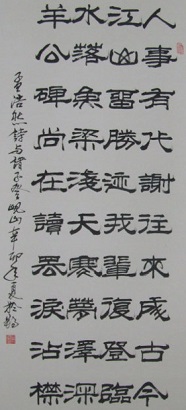 人事有代謝往來成古今
江山留勝迹我輩復登臨
水落魚梁淺天寒夢澤深
羊公碑尚在讀罷淚沾襟
孟浩然詩与諸子登峴山辛卯年夏